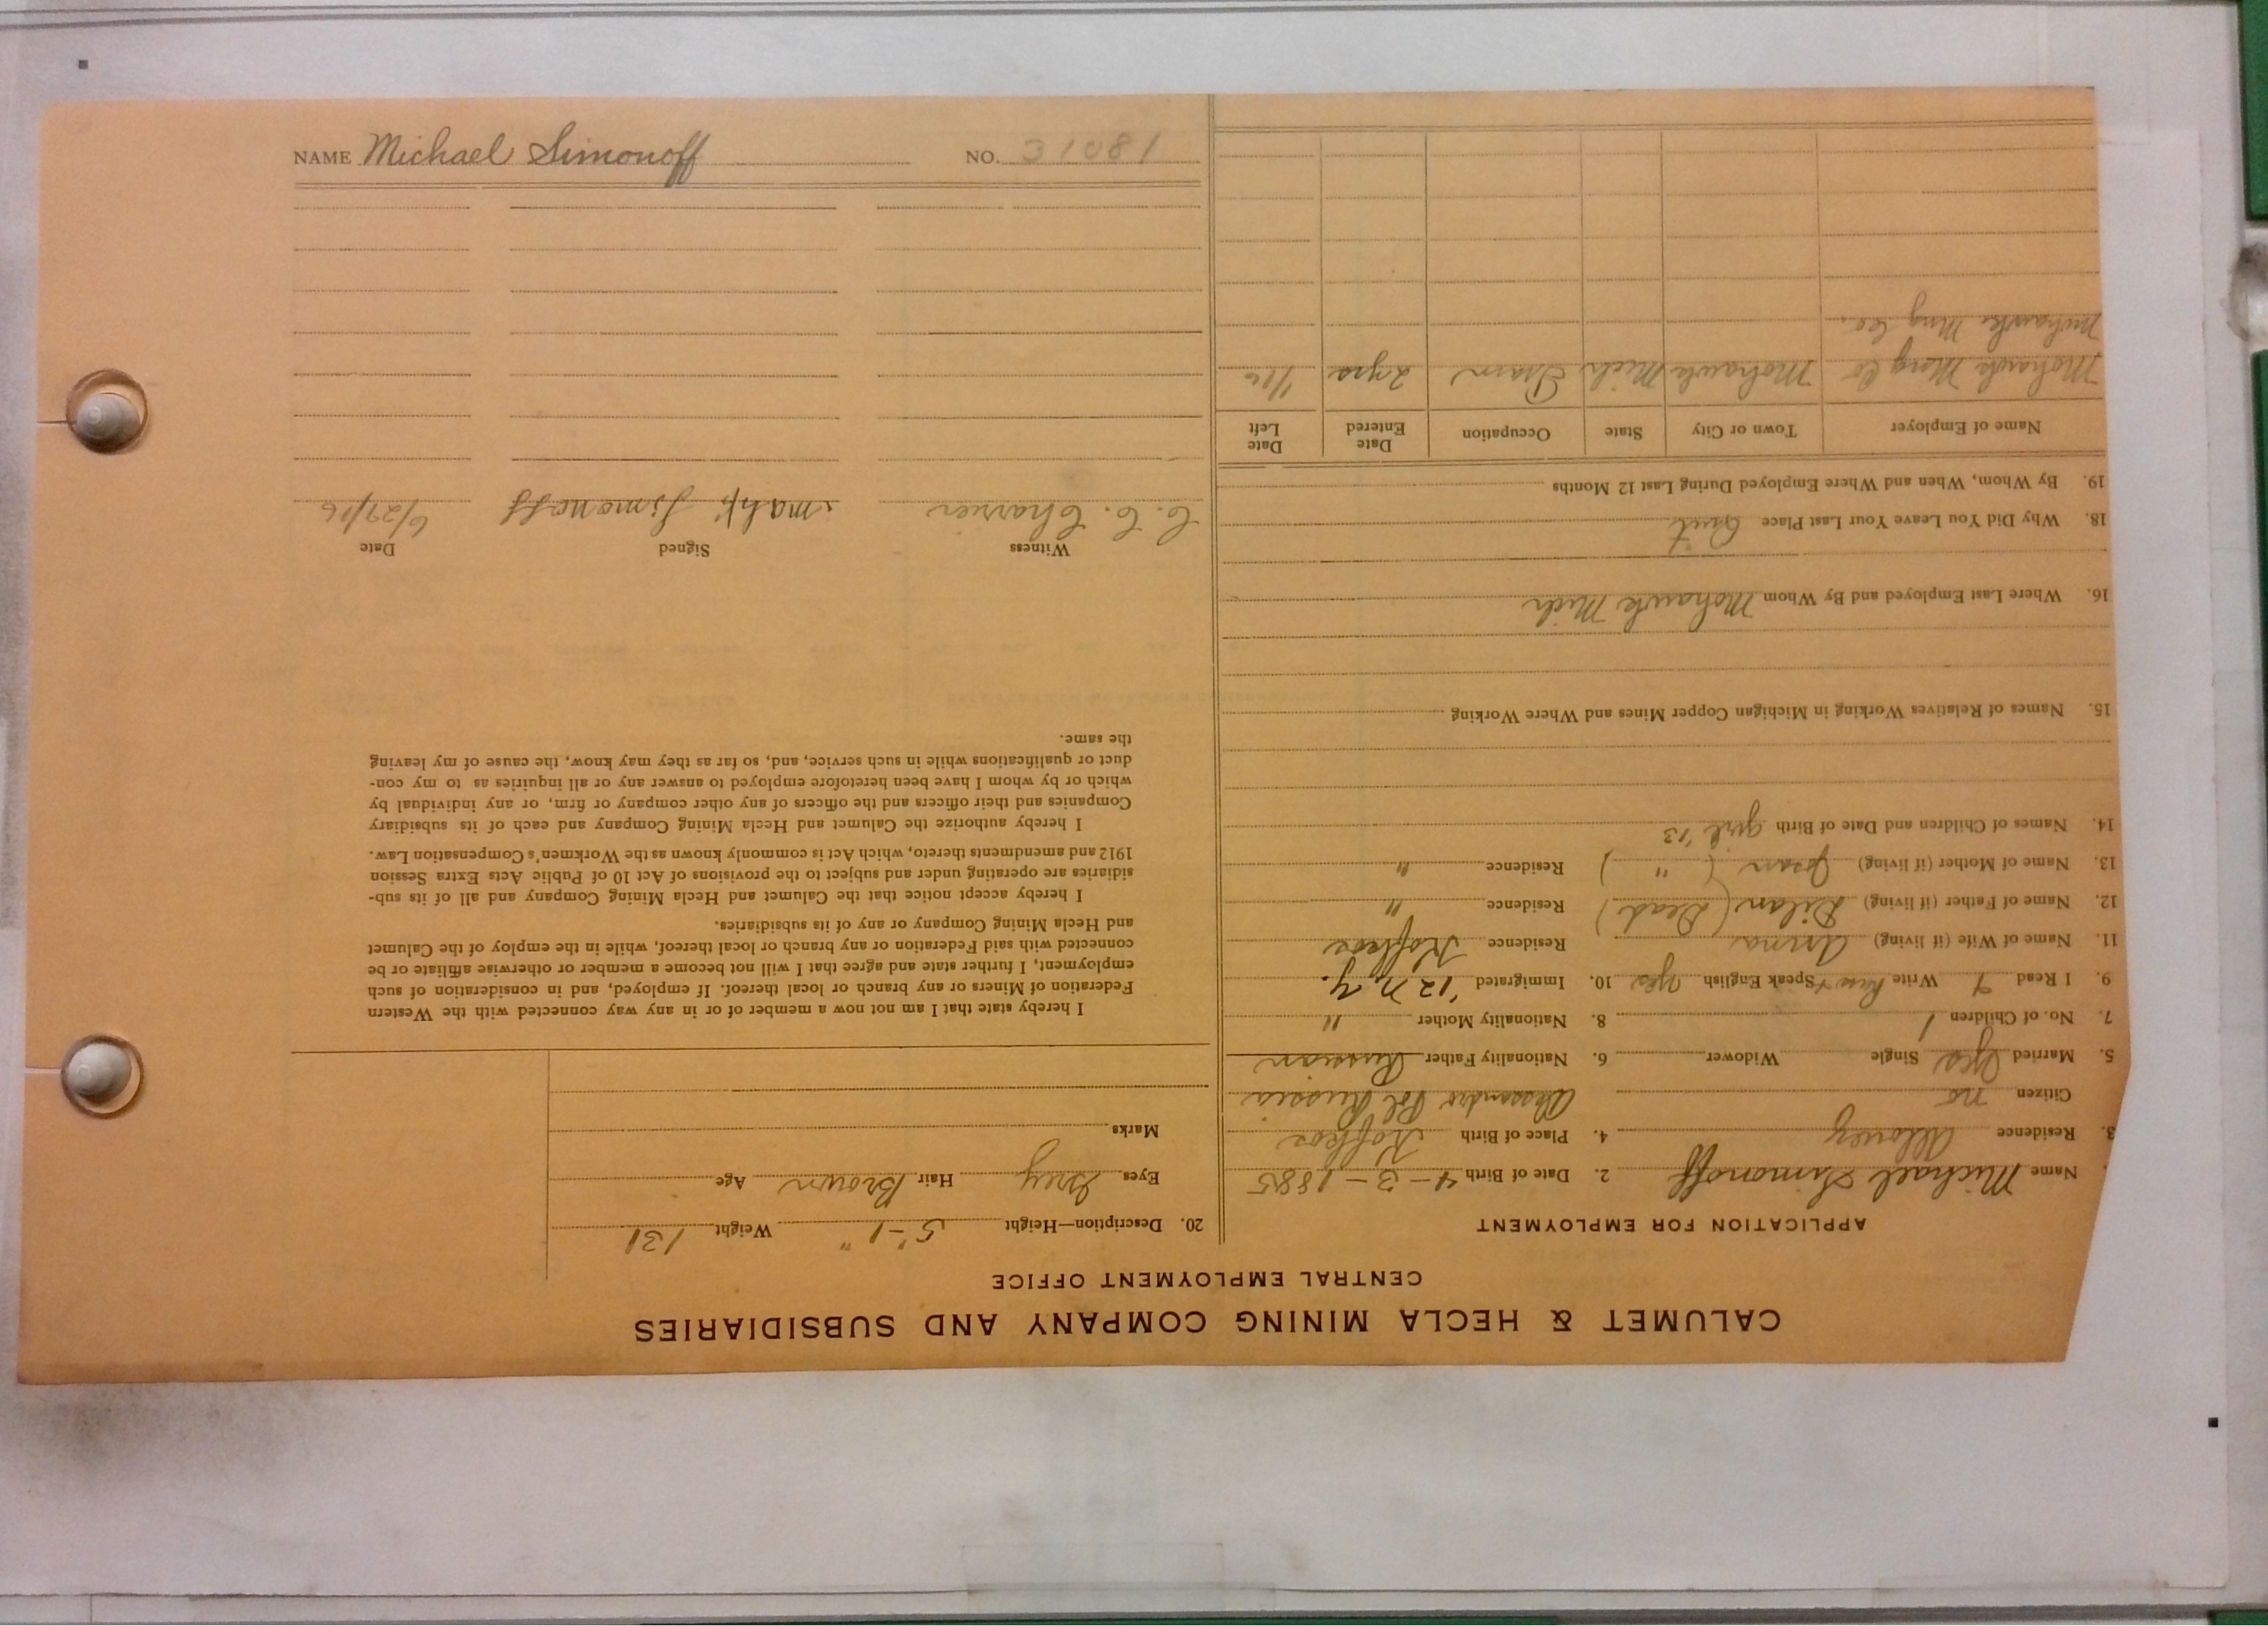 NAME Michael Simonoff NO. 31081
CALUMET & HECLA MINING COMPANY AND SUBSIDIARIES
CENTRAL EMPLOYMENT OFFICE
APPLICATION FOR EMPLOYMENT
Name Michael Simonoff 2. Date of Birth 4-3-1885
3. Residence Allouez 4. Place of Birth
Citizen no Russia
5. Married yes Single Widower 6. Nationality Father Russian
7. No. of Children 1 8. Nationality Mother "
9. I Read Write Speak English yes 10. Immigrated '12 N.Y.
11. Name of Wife (if living) Anna Residence
12. Name of Father (if living) (Dead) Residence "
13. Name of Mother (if living) ( " ) Residence "
14. Names of Children and Date of Birth girl '13
15. Names of Relatives Working in Michigan Copper Mines and Where Working
16. Where Last Employed and By Whom Mohawk Mich
18. Why Did You Leave Your Last Place Quit
19. By Whom, When and Where Employed During Last 12 Months
Name of Employer Town or City State Occupation Date Entered Date Left
Mohawk Mong Co Mohawk Mich Tram 2 yrs 1/16
Mohawk Mng Co.
20. Description—Height 5'-1" Weight 131
Eyes Grey Hair Brown Age
Marks
I hereby state that I am not now a member of or in any way connected with the Western
Federation of Miners or any branch or local thereof. If employed, and in consideration of such
employment, I further state and agree that I will not become a member or otherwise affiliate or be
connected with said Federation or any branch or local thereof, while in the employ of the Calumet
and Hecla Mining Company or any of its subsidiaries.
I hereby accept notice that the Calumet and Hecla Mining Company and all of its sub-
sidiaries are operating under and subject to the provisions of Act 10 of Public Acts Extra Session
1912 and amendments thereto, which Act is commonly known as the Workmen's Compensation Law.
I hereby authorize the Calumet and Hecla Mining Company and each of its subsidiary
Companies and their officers and the officers of any other company or firm, or any individual by
which or by whom I have been heretofore employed to answer any or all inquiries as to my con-
duct or qualifications while in such service, and, so far as they may know, the cause of my leaving
the same.
Witness Signed Date
C. C. Charrier Simonoff 6/27/16